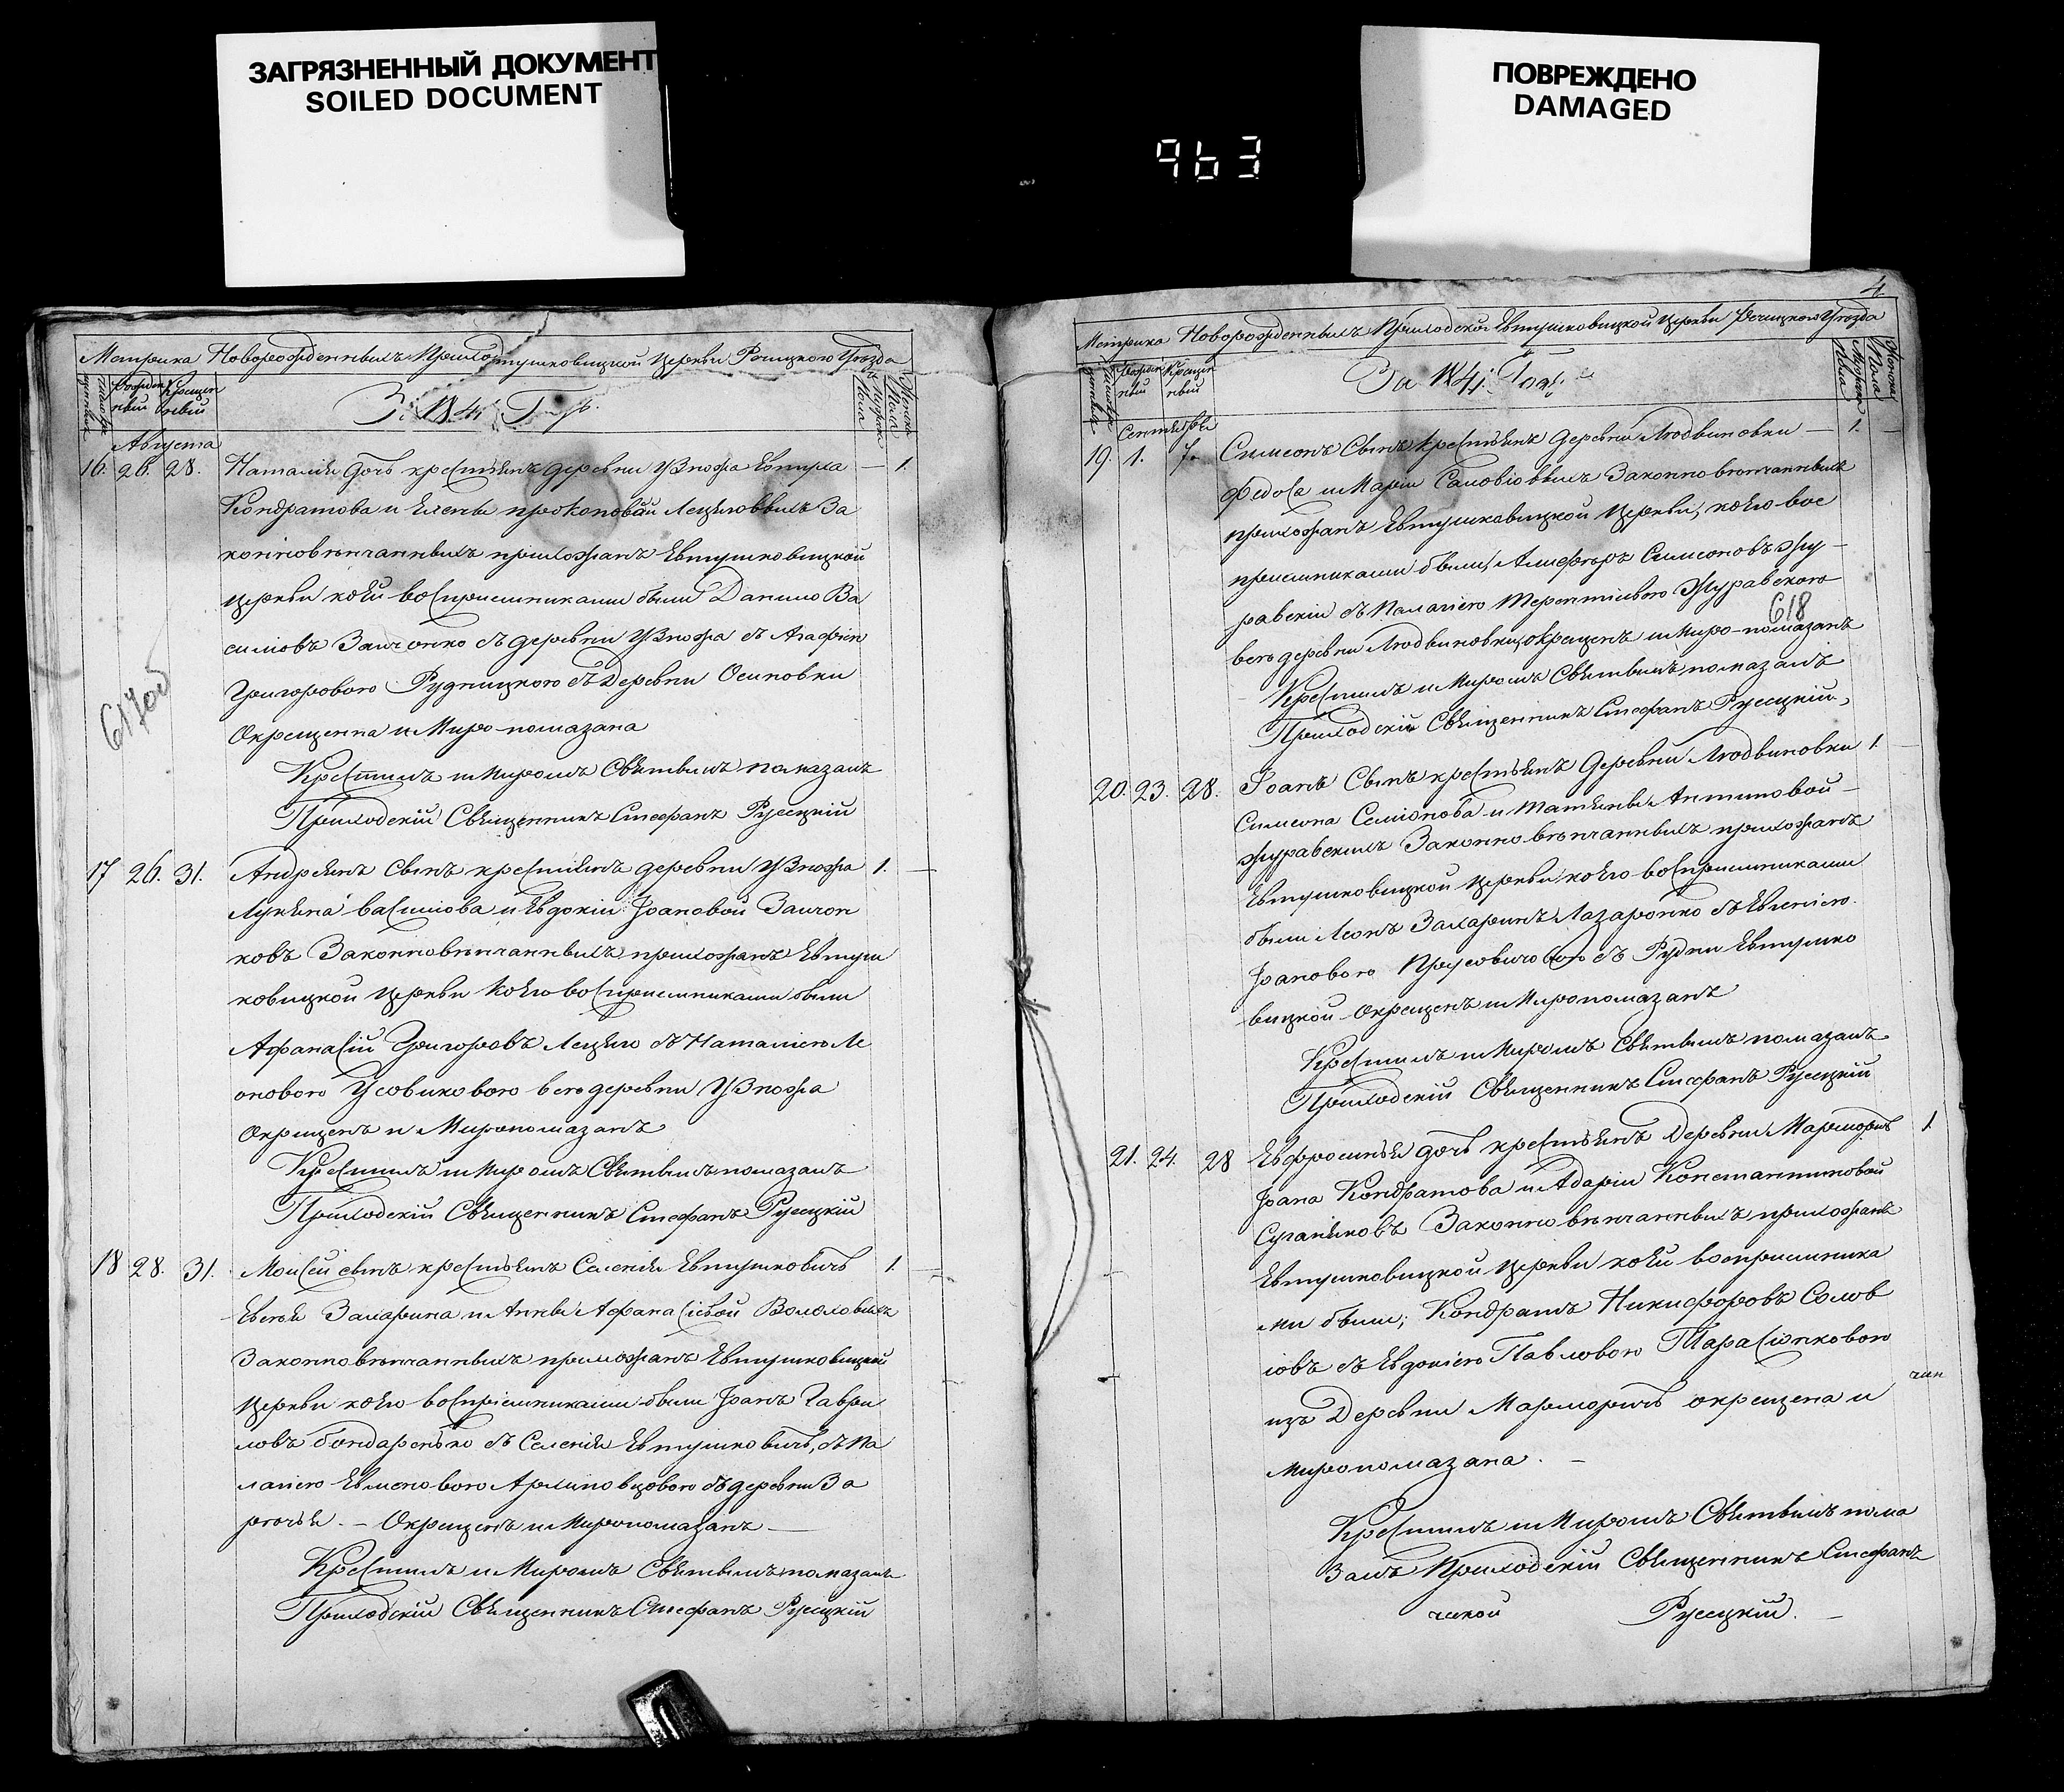 ЗАГРЯЗНЕННЫЙ ДОКУМЕНТ
SOILED DOCUMENT
ПОВРЕЖДЕНО
DAMAGED
963
Метрика Новорожденныхъ Прихо тушковицкой Церкви Речицкого Уѣзда
За 1841 Годъ.
Августа
16. 26. 28. Наталия дочь крестьянъ деревни Узножа Евтуха — 1.
Кондратова и Елены прокоповой Лециховыхъ За
конновѣнчанныхъ прихожанъ Евтушковицкой
церкви коѣй воспріемниками были Данило Ва
силіовъ Заичонко съ деревни Узножа съ Агафіею
Григорового Рудницкого съ Деревни Осиповки
Окрещенна и Миро-помазана
Крестилъ и Миромъ Святымъ помазалъ
Приходскій Священникъ Стефанъ Русецкій
617об
17 26. 31. Андреянъ Сынъ крестьянъ деревни Узножа 1. —
Лукяна василіова и Евдокіи Іоановой Заичон
ковъ Законновѣнчанныхъ прихожанъ Евтуш
ковицкой церкви коѣго воспріемниками были
Афанасій Григоровъ Лецихо съ Наталіею Ле
онового Усовикового всѣ деревни Узножа
Окрещенъ и Миропомазанъ
Крестилъ и Миромъ Святымъ помазалъ
Приходскій Священникъ Стефанъ Русецкій
18 28. 31. Моисей сынъ крестьянъ Селения Евтушковичь 1. —
Евсея Захарина и Анны Афанасіевой Волоховыхъ
Законновѣнчанныхъ прихожанъ Евтушковицкой
церкви коѣго воспріемниками были Іоанъ Гаври
ловъ бондаренько съ Селения Евтушковичь, съ Па
лагіею Евменового съ деревни За
рѣчья. — Окрещенъ и Миропомазанъ —
Крестилъ и Миромъ Святымъ помазалъ
Приходскій Священникъ Стефанъ Русецкій
4
Метрика Новорожденныхъ Приходской Евтушковицкой Церкви Речицкого Уѣзда
За 1841 Годъ
Сентября
19. 1. 7. Симеонъ Сынъ крестьянъ деревни Людвиновки — 1. —
Федоса и Маріи Саловіовыхъ Законновѣнчанныхъ
прихожанъ Евтушковицкой церкви, коѣго вос
пріемниками были, Алифѣръ Симеоновъ Жу-
равскій съ Палагіею Терентіевого Журавского
618
всѣ деревни Людвиновки, окрещенъ и Миро-помазанъ
Крестилъ и Миромъ Святымъ помазалъ
Приходскій Священникъ Стефанъ Русецкій,
20. 23. 28. Іоанъ Сынъ крестьянъ Деревни Людвиновки 1. —
Симеона Семіонова и Татяны Антиповой —
Журавскихъ Законновѣнчанныхъ прихожанъ
Евтушковицкой церкви коѣго воспріемниками
были Леонъ Захаринъ Лазаронко съ Евгеніею
Іоанового съ Рудни Евтушко
вицкой — Окрещенъ и Миропомазанъ
Крестилъ и Миромъ Святымъ помазалъ
Приходскій Священникъ Стефанъ Русецкій
21. 24. 28 Евфросинья дочь крестьянъ Деревни Марморичь 1.
Іоана Кондратова и Адаріи Константиновой
Законновѣнчанныхъ прихожанъ
Евтушковицкой церкви коѣй воспріемника
ми были, Кондратъ Никифоровъ Солов
іовъ съ Евдокіею Павлового Тарасіонкового
изъ Деревни Марморичь окрещена и
миропомазана. —
Крестилъ и Миромъ Святымъ пома
залъ Приходскій Священникъ Стефанъ
Русецкій. —